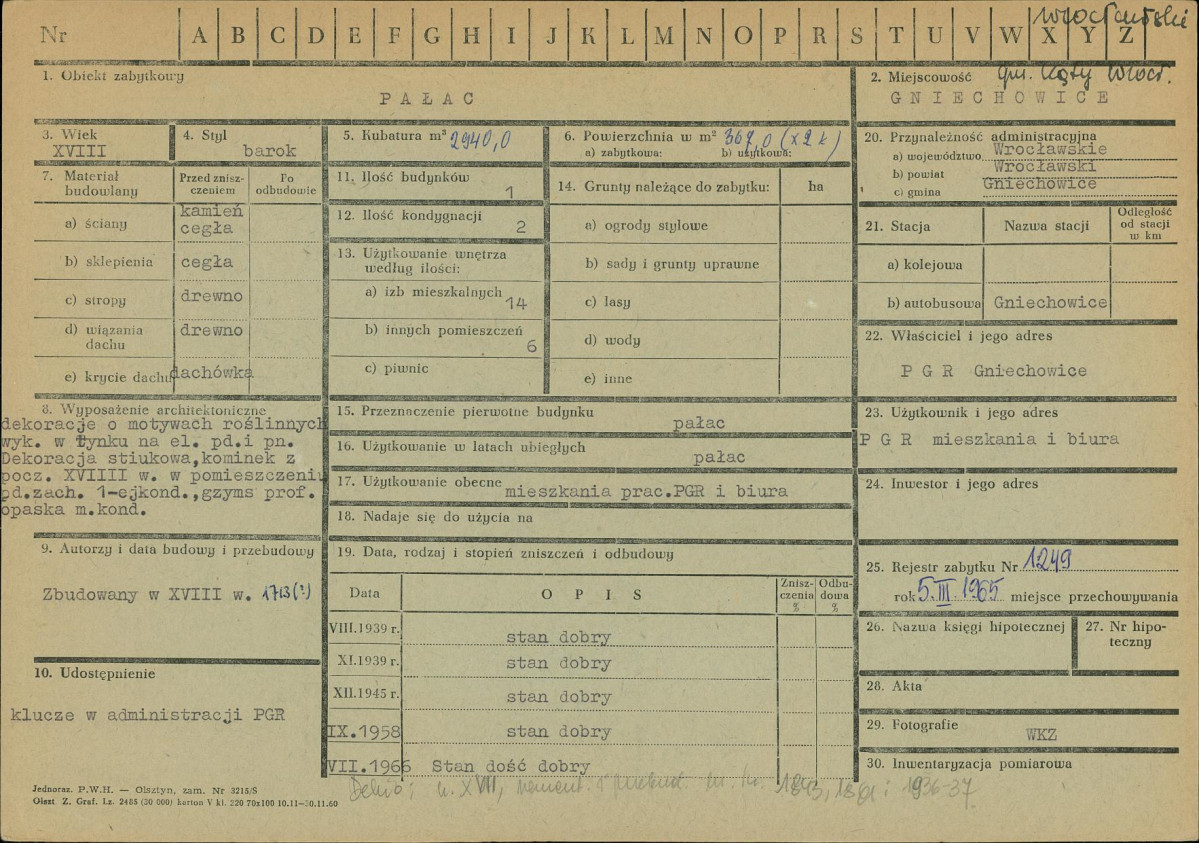 wrocławski
Nr A B C D E F G H I J K L M N O P R S T U V W X Y Z
1. Obiekt zabytkowy
PAŁAC
2. Miejscowość gm. Kąty Wrocł.
GNIECHOWICE
3. Wiek
XVIII
4. Styl
barok
5. Kubatura m³ 2940,0
6. Powierzchnia w m² 367,0 (x 2 k)
a) zabytkowa: b) użytkowa:
7. Materiał budowlany
Przed zniszczeniem
Po odbudowie
a) ściany
kamień
cegła
b) sklepienia cegła
c) stropy drewno
d) wiązania dachu drewno
e) krycie dachu dachówka
8. Wyposażenie architektoniczne
dekoracje o motywach roślinnych
wyk. w tynku na el. pd.i pn.
Dekoracja stiukowa,kominek z
pocz. XVIIII w. w pomieszczeniu
pd.zach. 1-ejkond.,gzyms prof.
opaska m.kond.
9. Autorzy i data budowy i przebudowy
Zbudowany w XVIII w. 1713(?)
10. Udostępnienie
klucze w administracji PGR
11. Ilość budynków 1
12. Ilość kondygnacji 2
13. Użytkowanie wnętrza według ilości:
a) izb mieszkalnych 14
b) innych pomieszczeń 6
c) piwnic
14. Grunty należące do zabytku: ha
a) ogrody stylowe
b) sady i grunty uprawne
c) lasy
d) wody
e) inne
15. Przeznaczenie pierwotne budynku
pałac
16. Użytkowanie w latach ubiegłych
pałac
17. Użytkowanie obecne mieszkania prac.PGR i biura
18. Nadaje się do użycia na
19. Data, rodzaj i stopień zniszczeń i odbudowy
Data OPIS Zniszczenia % Odbudowa %
VIII.1939 r. stan dobry
XI.1939 r. stan dobry
XII.1945 r. stan dobry
IX.1958 stan dobry
VII.1966 Stan dość dobry
20. Przynależność administracyjna
a) województwo Wrocławskie
b) powiat Wrocławski
c) gmina Gniechowice
21. Stacja Nazwa stacji Odległość od stacji w km
a) kolejowa
b) autobusowa Gniechowice
22. Właściciel i jego adres
P G R Gniechowice
23. Użytkownik i jego adres
P G R mieszkania i biura
24. Inwestor i jego adres
25. Rejestr zabytku Nr 1249
rok 5.III.1965 miejsce przechowywania
26. Nazwa księgi hipotecznej
27. Nr hipoteczny
28. Akta
29. Fotografie
WKZ
30. Inwentaryzacja pomiarowa
Jednoraz. P.W.H. — Olsztyn, zam. Nr 3215/S
Olszt. Z. Graf. Lz. 2485 (30 000) karton V kl. 220 70x100 10.11—30.11.60
Dehio: XVII, 1936-37